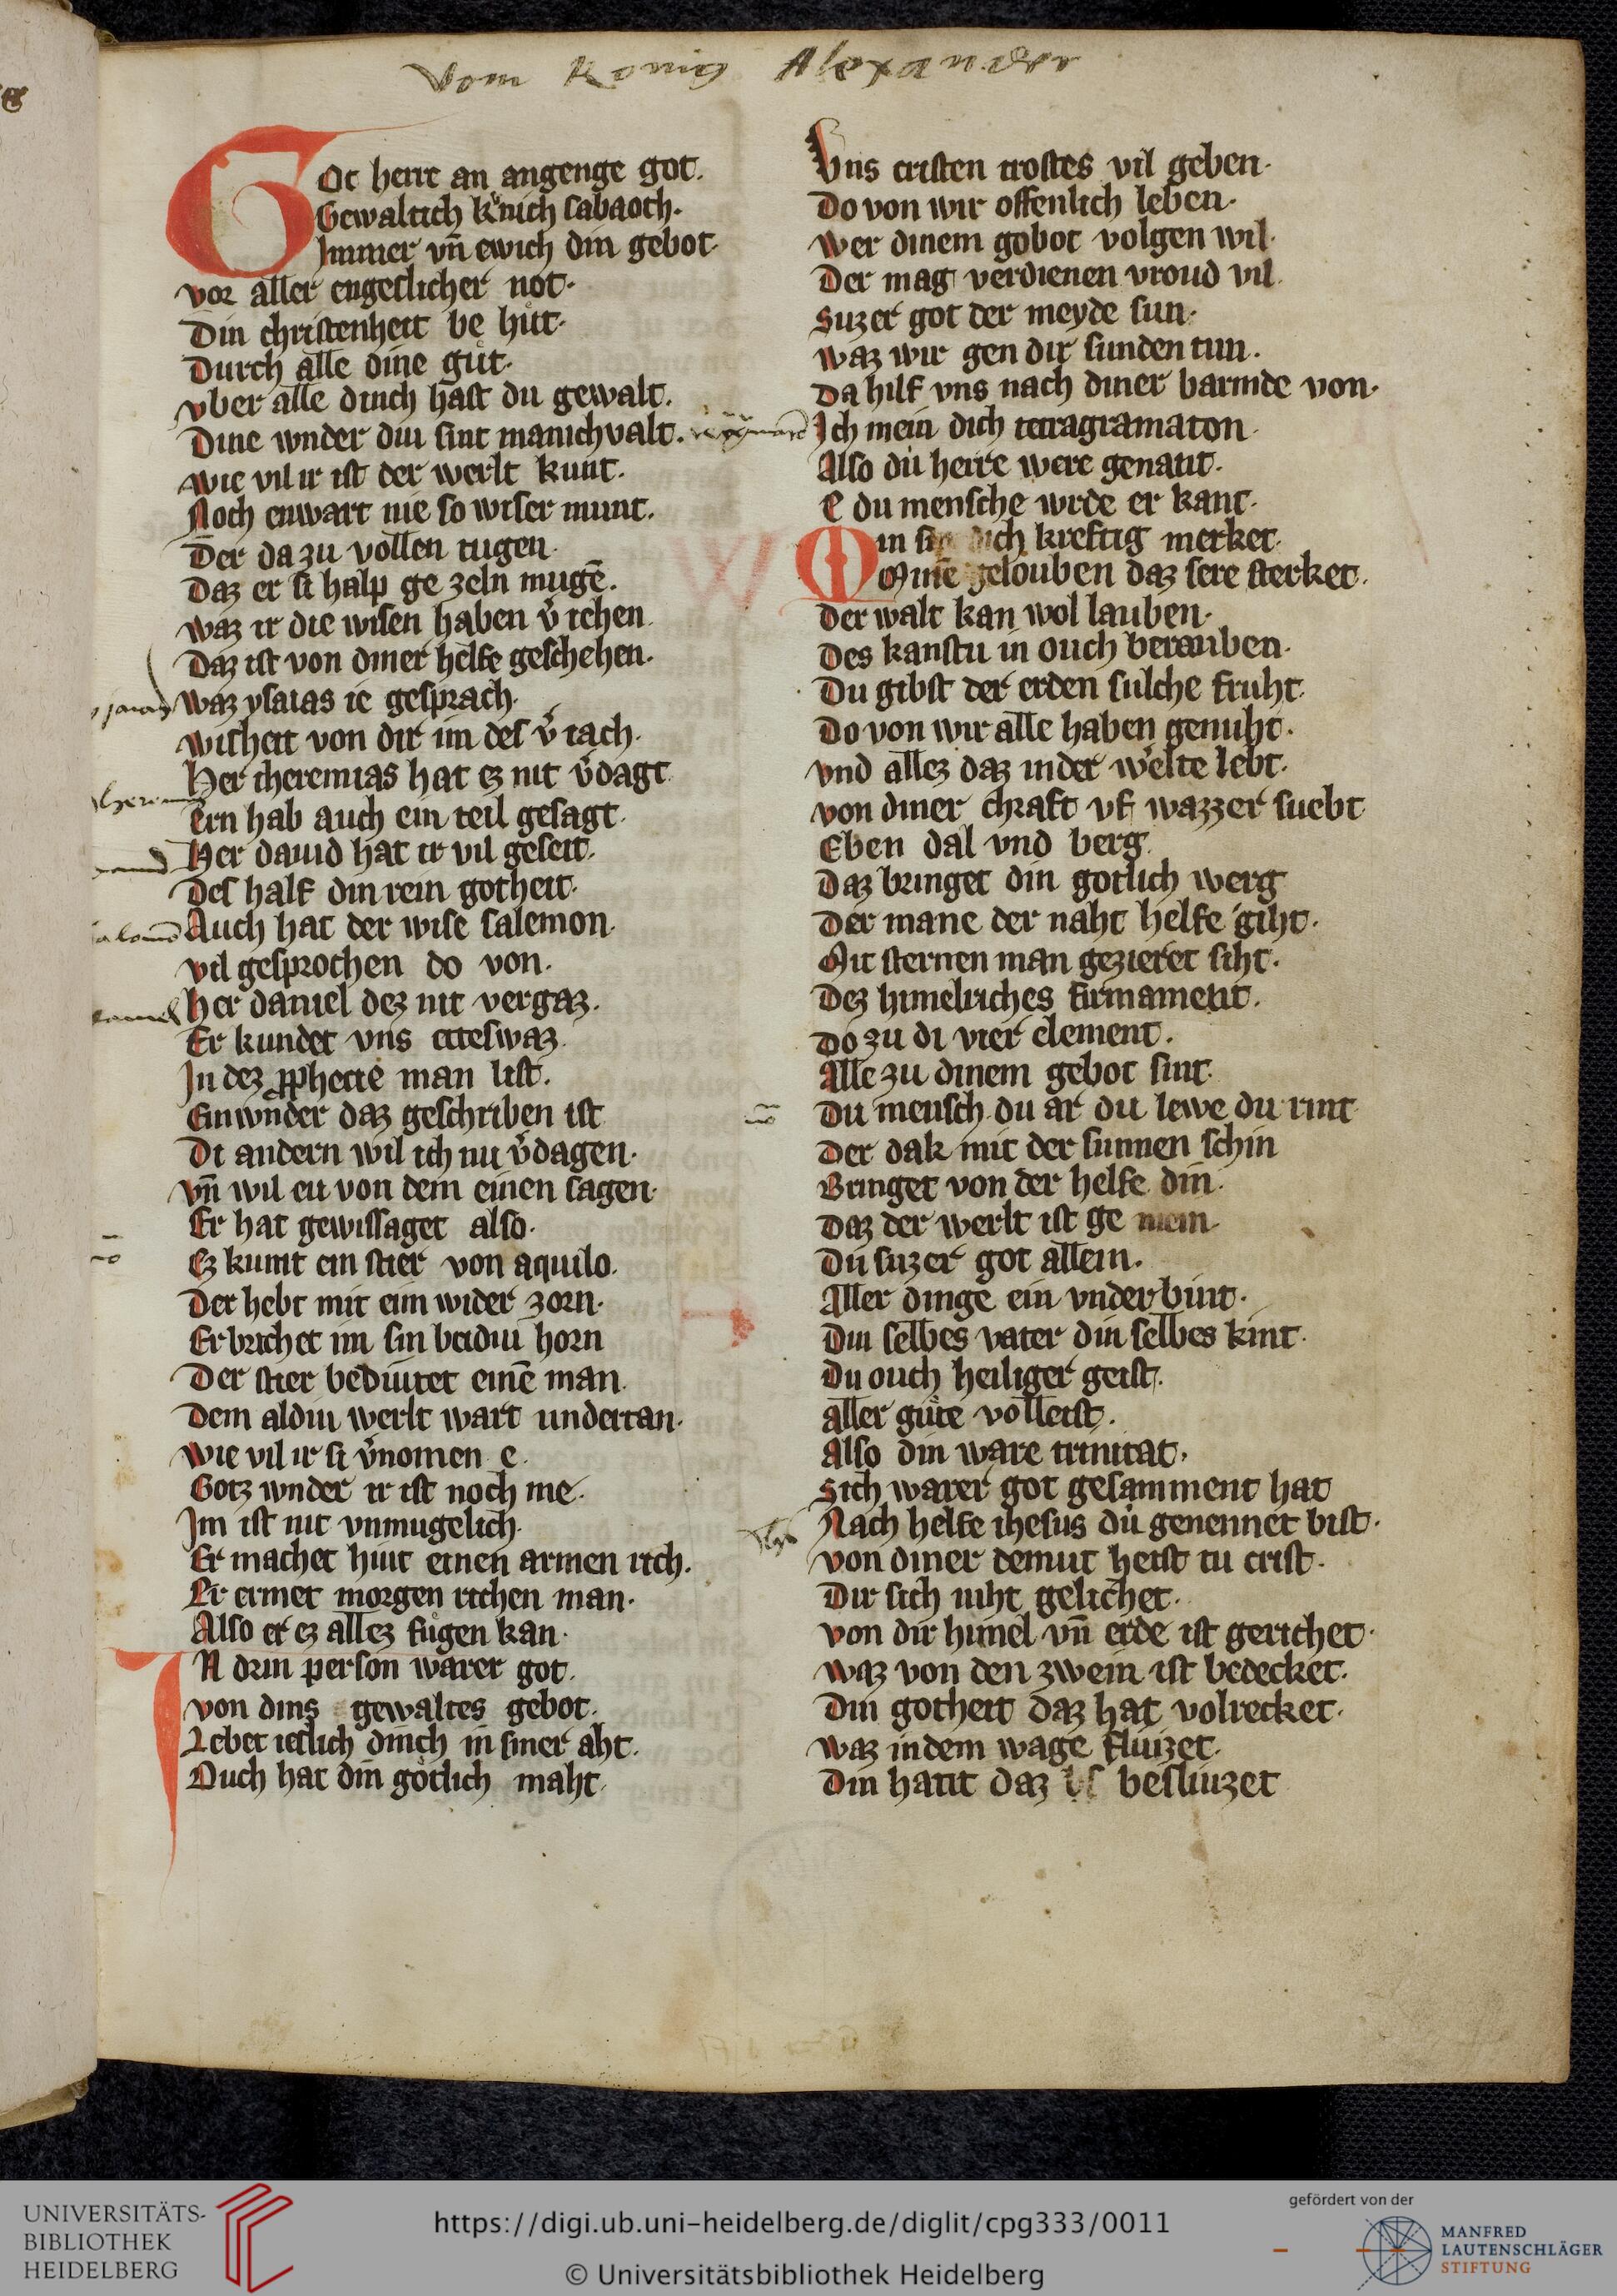 Vom Konig Alexander
Got herre an angenge got.
Gewaltich kůnich sabaoth.
Immer vn̄ ewich din gebot.
vor aller engeslicher not.
Din christenheit be hůt.
Durch alle dine gůt.
vber alle dinch hast du gewalt.
Dine wnder diu sint manichvalt.
wie vil ir ist der werlt kunt.
Noch enwart nie so wiser munt.
Der da zu vollen tugen.
Daz er si halp ge zeln mugē.
waz ir die wisen haben v̄ iehen.
Daz ist von diner helfe geschehen.
waz ysaias ie gesprach.
wisheit von dir im des v̄ iach.
Her iheremias hat ez nit v̄dagt
ern hab auch ein teil gesagt.
Her dauid hat ir vil geseit.
Des half din rein gotheit.
Auch hat der wise salemon.
vil gesprochen do von.
Her daniel dez nit vergaz.
Er kundet vns etteswaz.
In dez ꝓphecie man list.
Ein wnder daz geschriben ist
Di andern wil ich nu v̄dagen.
vn̄ wil eu von dem einen sagen.
Er hat gewissaget also.
Ez kumt ein stier von aquilo.
Der hebt mit eim wider zorn.
Er brichet im sin beidiu horn
Der stier beduitet einē man.
Dem aldiu werlt wart undertan.
wie vil ir si v̄nomen e.
Gotz wnder ir ist noch me.
Im ist nit vnmugelich.
Er machet hiut einen armen rich.
Er ermet morgen richen man.
Also er ez allez fůgen kan.
IN drin person warer got.
von dins gewaltes gebot.
Lebet ieslich dinch in siner aht.
Ouch hat din gotlich maht.
Vns cristen trostes vil geben.
Do von wir offenlich leben.
wer dinem gobot volgen wil.
Der mag verdienen vroud vil.
Suzer got der meyde sun.
waz wir gen dir sunden tun.
Da hilf vns nach diner barmde von.
Ich mein dich tetragramaton.
Also du herre were genant.
E du mensche wrde er kant.
Min sin dich kreftig merket.
Minē gelouben daz sere sterket.
Der walt kan wol lauben.
Des kanstu in ouch berauben.
Du gibst der erden sulche fruht.
Do von wir alle haben genuht.
vnd allez daz in der welte lebt.
von diner chraft vf wazzer suebt
Eben dal vnd berg.
Daz bringet din gotlich werg
Der mane der naht helfe giht.
Mit sternen man gezieret siht.
Dez himelriches firmament.
Do zu di vier element.
Alle zu dinem gebot sint.
Du mensch du ar du lewe du rint
Der dak mit der sunnen schin
Bringet von der helfe din.
Daz der werlt ist ge mein.
Du suzer got allein.
Aller dinge ein vnderbint.
Din selbes vater din selbes kint.
Du ouch heiliger geist.
aller gůte volleist.
Also din ware trinitat.
Sich warer got gesamment hat
Nach helfe ihesus du genennet bist.
von diner demut heist tu crist.
Dir sich niht gelichet.
von dir himel vn̄ erde ist gerichet.
waz von den zwein ist bedecket.
Din gotheit daz hat volrecket.
waz in dem wage fliuzet.
Din hant daz besliuzet
UNIVERSITÄTS-
BIBLIOTHEK
HEIDELBERG
https://digi.ub.uni-heidelberg.de/diglit/cpg333/0011
© Universitätsbibliothek Heidelberg
gefördert von der
MANFRED
LAUTENSCHLÄGER
STIFTUNG